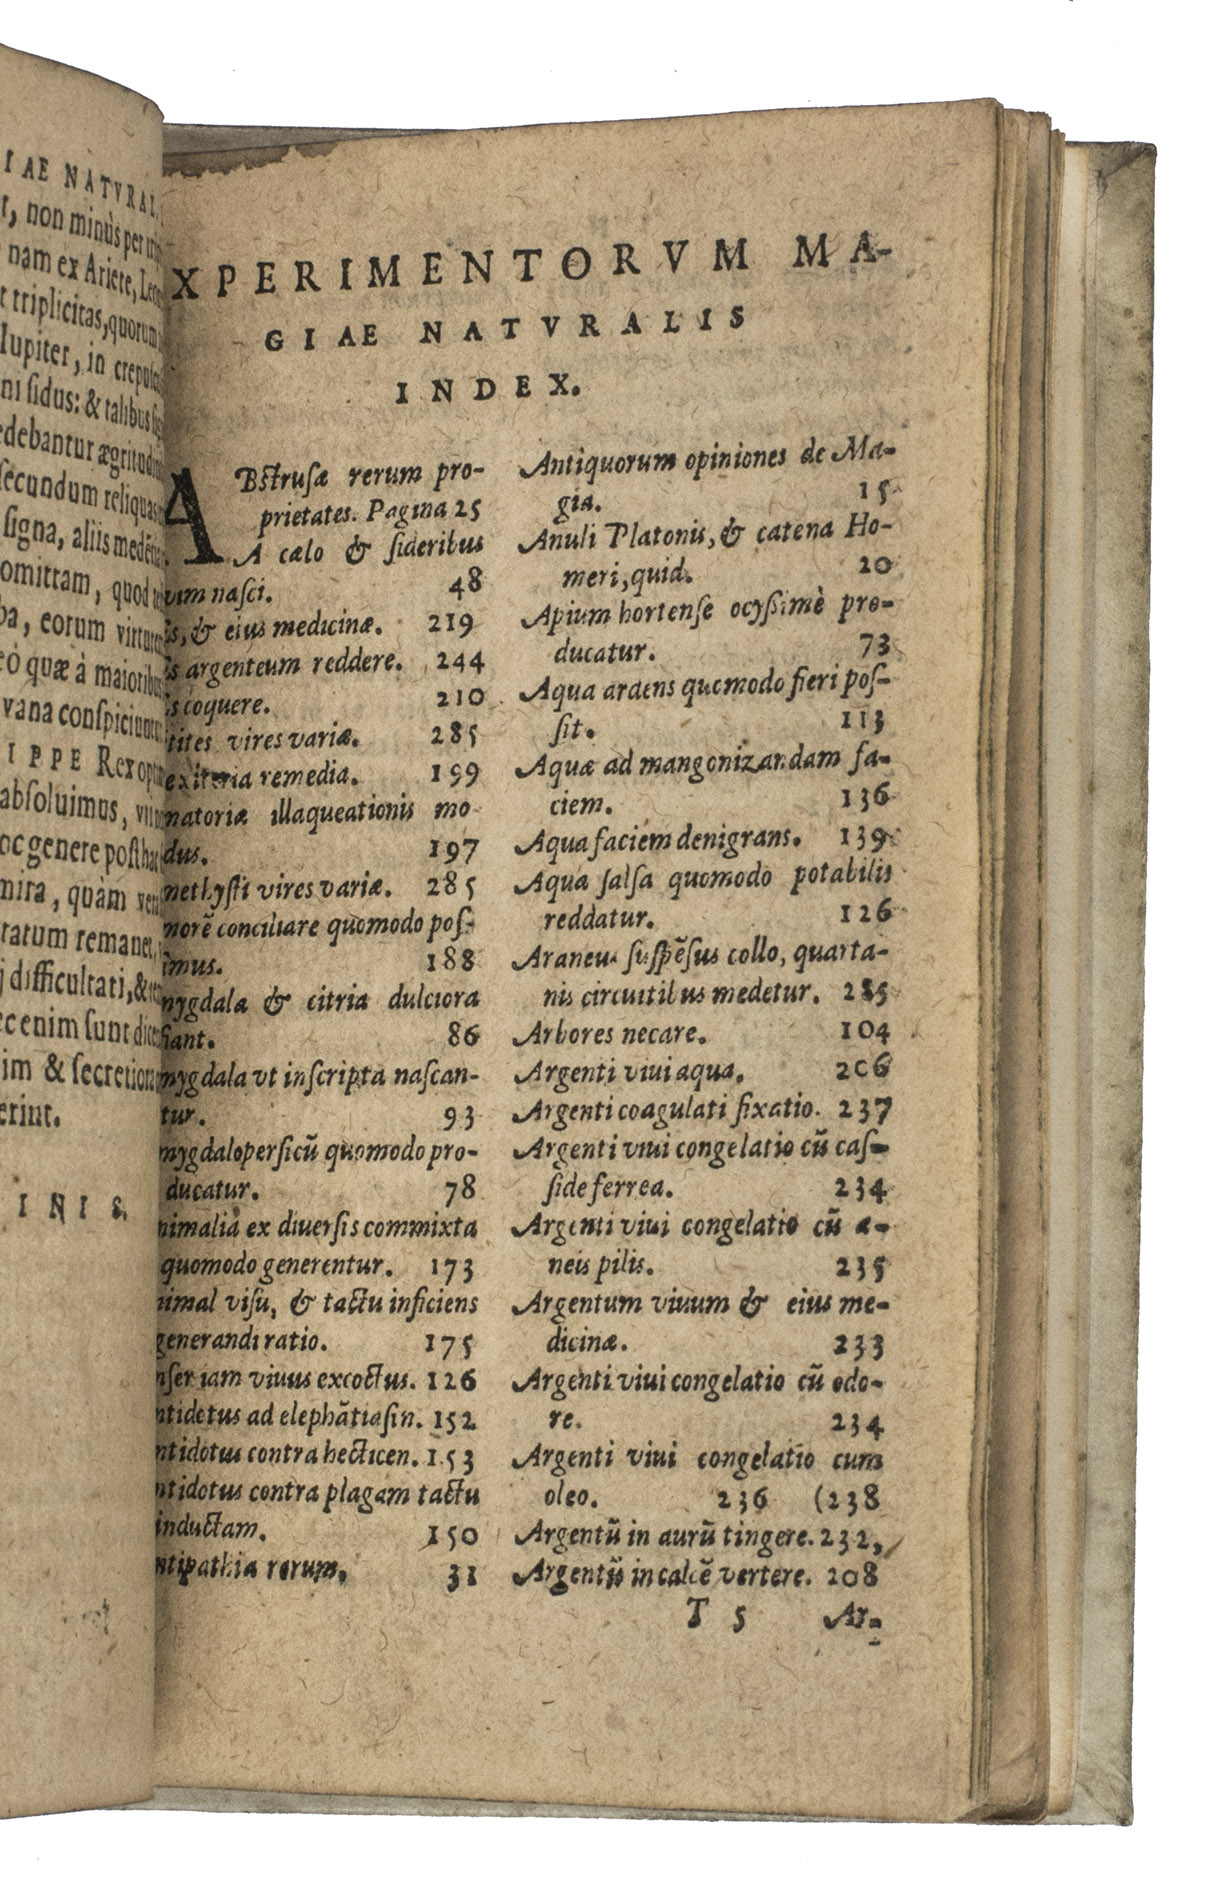 IAE NATVRAL
non minùs per
nam ex Ariete, Leo
triplicitas, quorum
Iupiter, in crepuſc
ni ſidus: & talibus
debantur ægritudi
ſecundum reliqua
ſigna, aliis medē
omittam, quod
ba, eorum virtu
eò quæ à maioribus
vana conſpiciun
IPPE Rex opt
abſoluimus,
oc genere poſthac
mira, quàm
ratum remanet,
difficultati, &
c enim ſunt dice
im & ſecretior
erint.
INIS.
XPERIMENTORVM MA-
GIAE NATVRALIS
INDEX.
ABſtruſæ rerum pro-
prietates. Pagina 25
A cælo & ſideribus
vim naſci. 48
is, & eius medicinæ. 219
is argenteum reddere. 244
is coquere. 210
tites vires variæ. 285
exiteria remedia. 199
natoriæ illaqueationis mo
dus. 197
methyſti vires variæ. 285
morē conciliare quomodo poſ-
imus. 188
mygdala & citria dulciora
fiant. 86
mygdala vt inſcripta naſcan-
tur. 93
mygdaloperſicū quomodo pro-
ducatur. 78
nimalia ex diuerſis commixta
quomodo generentur. 173
nimal viſu, & tactu inficiens
generandi ratio. 175
nſer iam viuus excoctus. 126
ntidotus ad elephātiaſin. 152
ntidotus contra hecticen. 153
ntidotus contra plagam tactu
inductam. 150
ntipathia rerum. 31
Antiquorum opiniones de Ma-
gia. 15
Anuli Platonis, & catena Ho-
meri, quid. 20
Apium hortenſe ocyſsimè pro-
ducatur. 73
Aqua ardens quomodo fieri poſ-
ſit. 113
Aquæ ad mangonizandam fa-
ciem. 136
Aqua faciem denigrans. 139
Aqua ſalſa quomodo potabilis
reddatur. 126
Araneus ſuſpēſus collo, quarta-
nis circuitibus medetur. 285
Arbores necare. 104
Argenti viui aqua. 206
Argenti coagulati fixatio. 237
Argenti viui congelatio cū caſ-
ſide ferrea. 234
Argenti viui congelatio cū æ-
neis pilis. 235
Argentum viuum & eius me-
dicinæ. 233
Argenti viui congelatio cū odo-
re. 234
Argenti viui congelatio cum
oleo. 236 (238
Argentū in aurū tingere. 232,
Argentū in calcē vertere. 208
T 5 Ar-